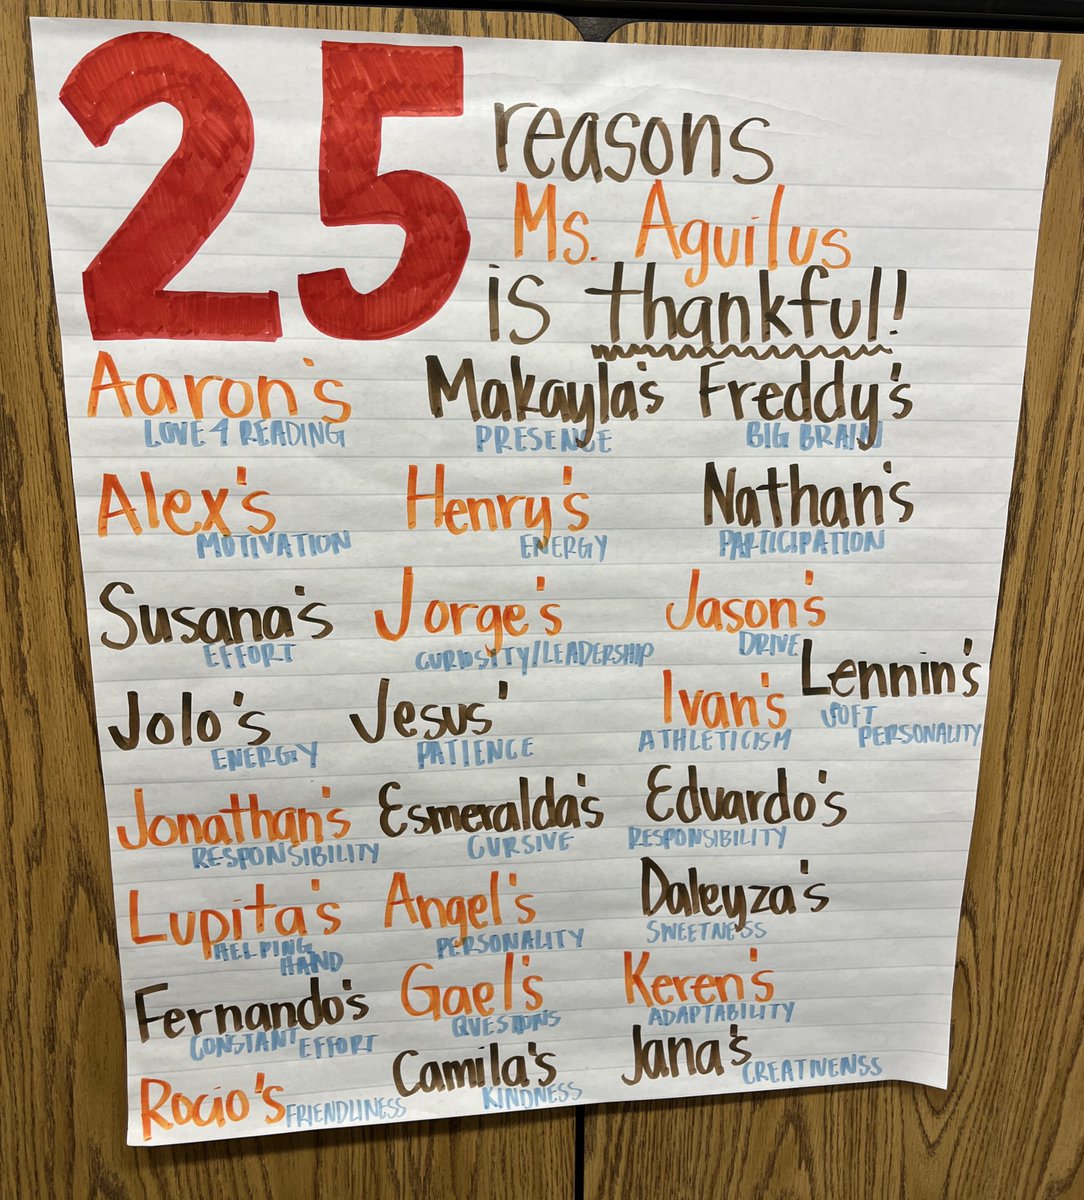 25 reasons
Ms. Aguilus
is thankful!
Aaron's
LOVE 4 READING
Makayla's
PRESENCE
Freddy's
BIG BRAIN
Alex's
MOTIVATION
Henry's
ENERGY
Nathan's
PARTICIPATION
Susana's
EFFORT
Jorge's
CURIOSITY/LEADERSHIP
Jason's
DRIVE
Jolo's
ENERGY
Jesus'
PATIENCE
Ivan's
ATHLETICISM
Lennin's
SOFT
PERSONALITY
Jonathan's
RESPONSIBILITY
Esmeralda's
CURSIVE
Eduardo's
RESPONSIBILITY
Lupita's
HELPING
HAND
Angel's
PERSONALITY
Daleyza's
SWEETNESS
Fernando's
CONSTANT EFFORT
Gael's
QUESIONS
Keren's
ADAPTABILITY
Rocio's FRIENDLINESS
Camila's
KINDNESS
Jana's
CREATIVENSS